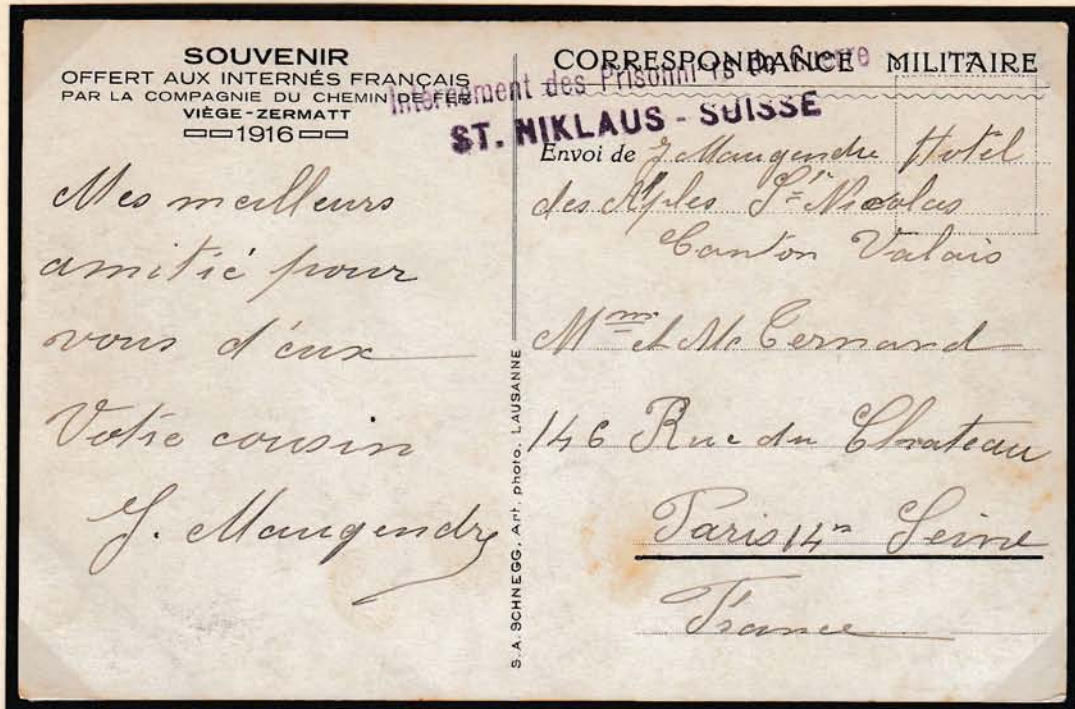 SOUVENIR
OFFERT AUX INTERNÉS FRANÇAIS
PAR LA COMPAGNIE DU CHEMIN DE FER
VIÈGE-ZERMATT
1916
Mes meilleurs
amitié pour
vous d'eux
Votre cousin
J. Maugendre
S. A. SCHNEGG, Art. photo, LAUSANNE
CORRESPONDANCE MILITAIRE
Internement des Prisonniers de Guerre
ST. NIKLAUS - SUISSE
Envoi de J Maugendre Hotel
des Alples St Nicolas
Canton Valais
Mme et Mr Bernard
146 Rue du Chateau
Paris 14e Seine
France